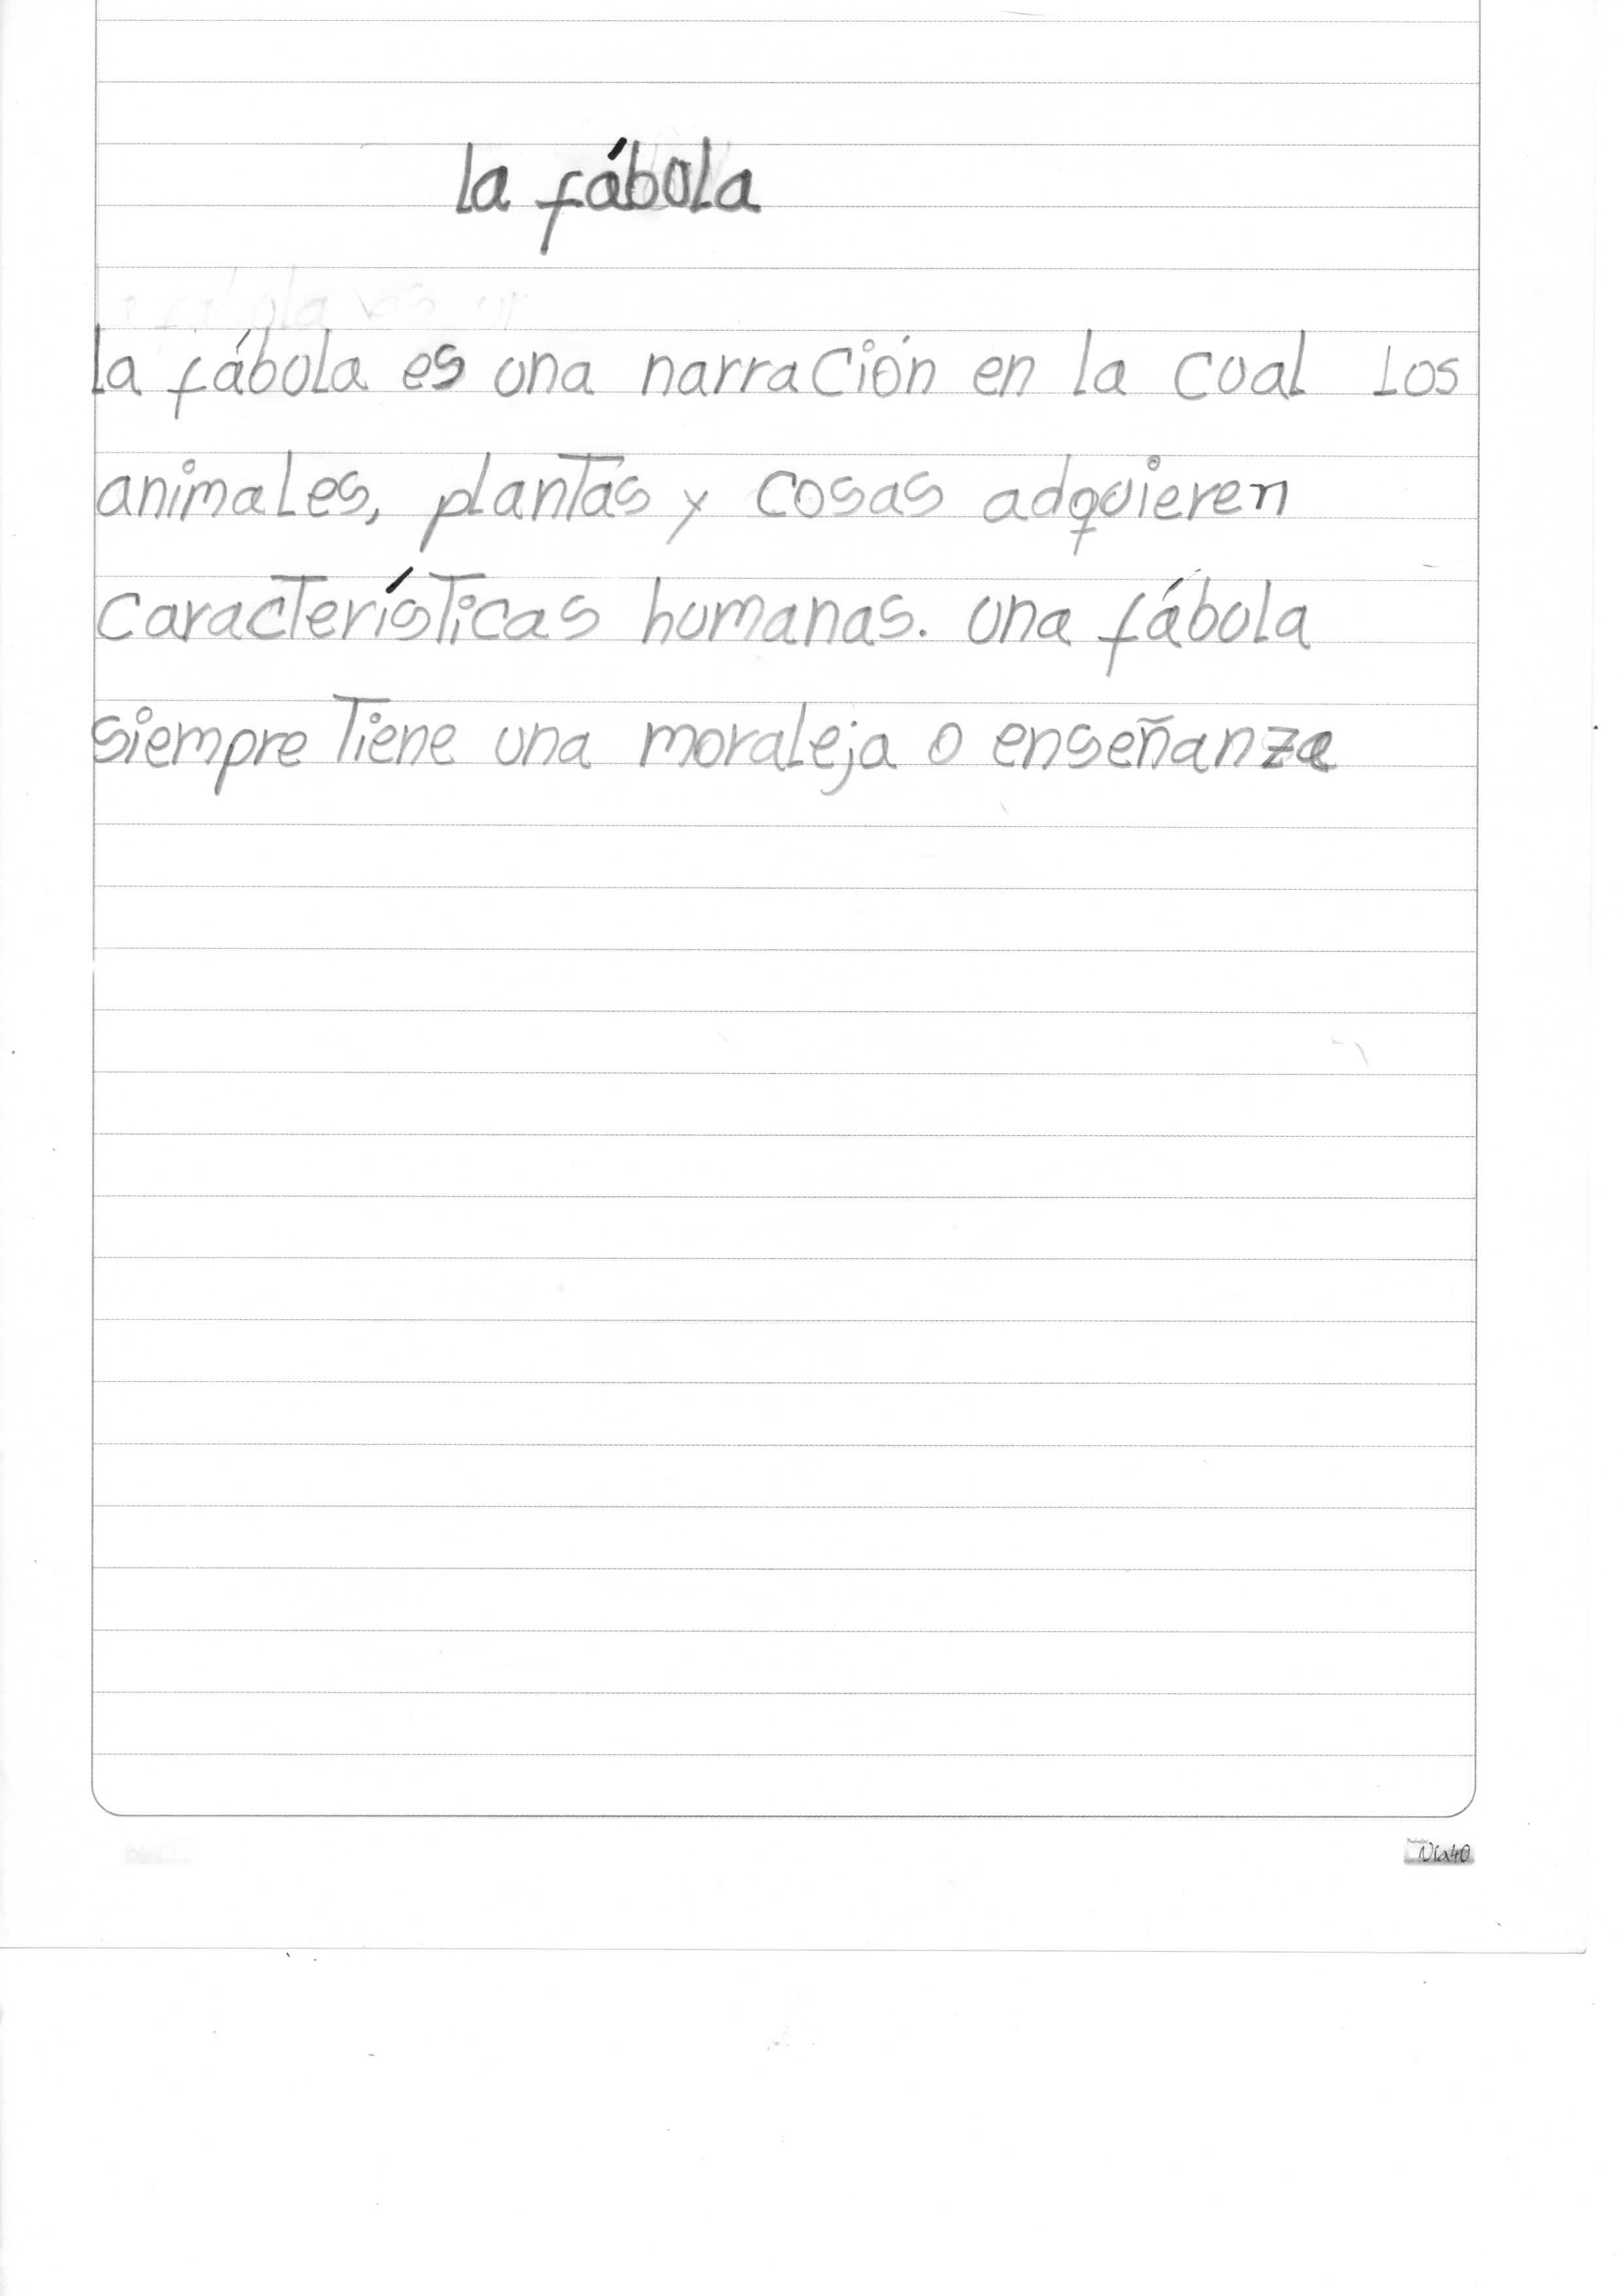 la fábula
la fábula es una narración en la cual los
animales, plantas y cosas adquieren
características humanas. una fábula
siempre Tiene una moraleja o enseñanza